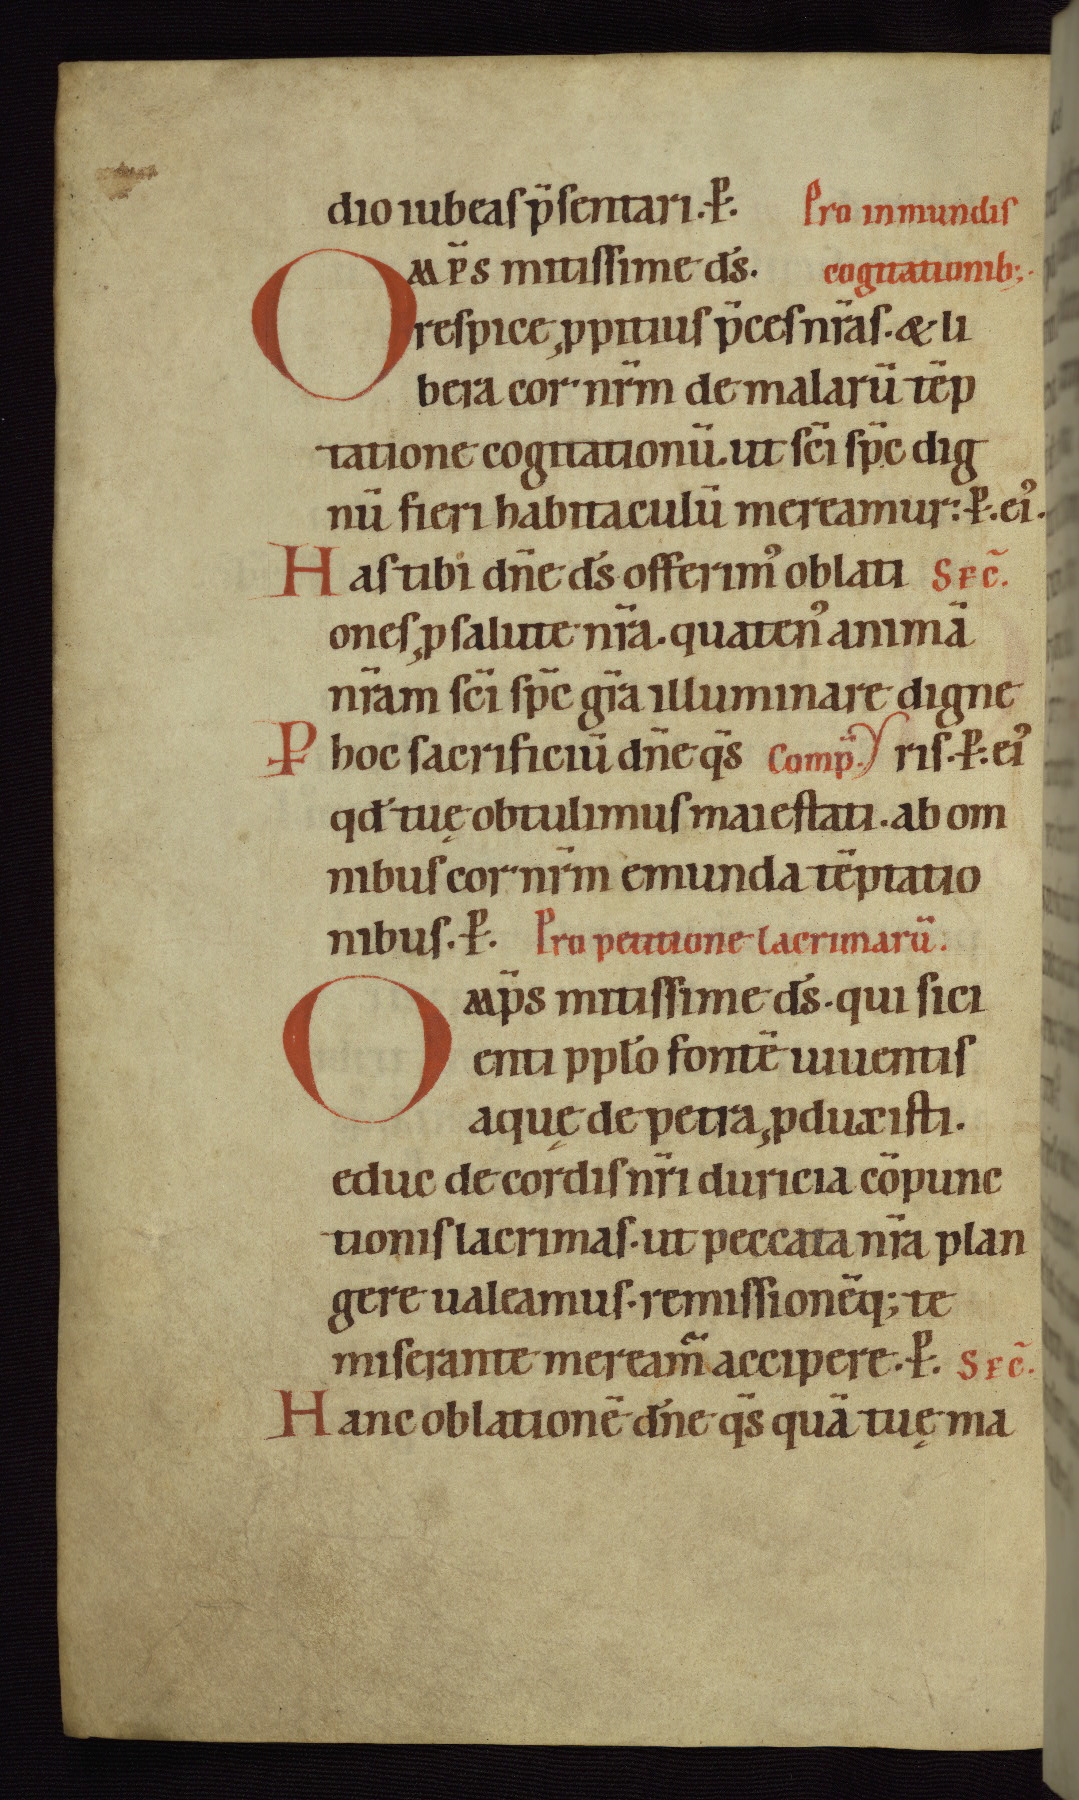 dio iubeas p̄sentari. ꝑ. Pro inmundis
Omp̄s mitissime ds̄. cogitationib;.
respice ꝓpitius p̄ces nr̄as. & li
bera cor nr̄m de malarū tēp
tatione cogitationū. ut sc̄i sp̄c dig
nū fieri habitaculū mereamur: ꝑ. eiꝰ.
Has tibi dn̄e ds̄ offerimꝰ oblati Sec̄.
ones ꝓ salute nr̄a. quatenꝰ animā
nr̄am sc̄i sp̄c gr̄a illuminare digne
ꝑ hoc sacrificiū dn̄e qs̄ Comp̄. ris. ꝑ. eiꝰ
qd̄ tuę obtulimus maiestati. ab om
nibus cor nr̄m emunda tēptatio
nibus. ꝑ. Pro petitione lacrimarū.
Omp̄s mitissime ds̄. qui sici
enti pplō fontē uiuentis
aquę de petra ꝓduxisti.
educ de cordis nr̄i duricia cōpunc
tionis lacrimas. ut peccata nr̄a plan
gere ualeamus. remissionēq; te
miserante meream̃ accipere. ꝑ. Sec̄.
Hanc oblationē dn̄e qs̄ quā tuę ma